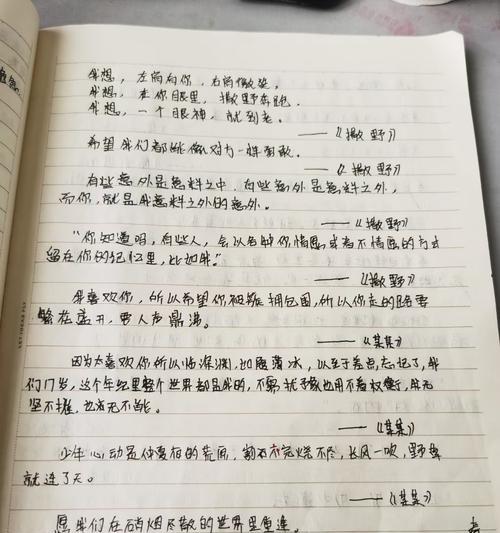 我想，左肩有你，右肩微笑。
我想，在你眼里，撒野奔跑。
我想，一个眼神，就到老。
——《撒野》
希望我们都能像对方一样勇敢。
——《撒野》
有些意外是意料之中，有些意外是意料之外，
而你，就是我意料之外的意外。
——《撒野》
“你知道吗，有些人，会以各种你情愿或者不情愿的方式
留在你的记忆里，比如我。”
——《撒野》
我喜欢你，所以希望你被簇拥包围，所以你走的路要
繁花盛开，要人声鼎沸。
——《某某》
因为太喜欢你所以临深渊，如履薄冰，以至于差点忘记了，我
们17岁，这个年纪里整个世界都是我的，不需扰豫也用不着权衡，我无
坚不摧，也无所不能。
——《某某》
少年心动是仲夏夜的荒原，割不完烧不尽，长风一吹，野草
就连了天。
——《某某》
愿我们在硝烟尽散的世界里重逢。